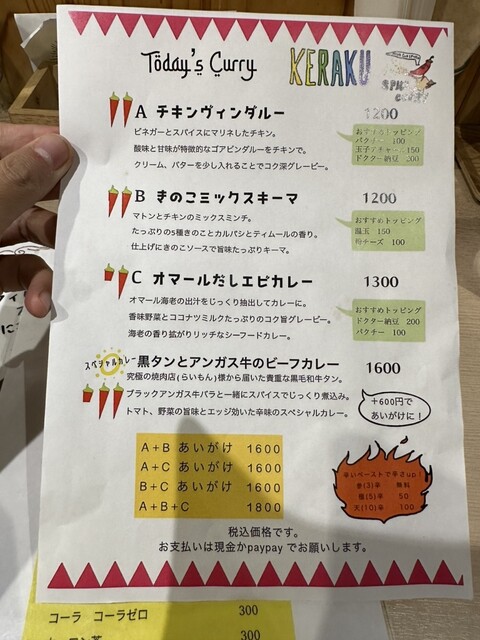 Today's Curry
KERAKU
SPICE
CURRY
A チキンヴィンダルー 1200
ビネガーとスパイスにマリネしたチキン。
酸味と甘味が特徴的なゴアビンダルーをチキンで。
クリーム、バターを少し入れることでコク深グレービー。
おすすめトッピング
パクチー 100
玉子アチャール 150
ドクター納豆 200
B きのこミックスキーマ 1200
マトンとチキンのミックスミンチ。
たっぷりの5種きのことカルパシとティムールの香り。
仕上げにきのこソースで旨味たっぷりキーマ。
おすすめトッピング
温玉 150
粉チーズ 100
C オマールだしエビカレー 1300
オマール海老の出汁をじっくり抽出してカレーに。
香味野菜とココナツミルクたっぷりのコク旨グレービー。
海老の香り拡がりリッチなシーフードカレー。
おすすめトッピング
ドクター納豆 200
パクチー 100
スペシャルカレー 黒タンとアンガス牛のビーフカレー 1600
究極の焼肉店(らいもん)様から届いた貴重な黒毛和牛タン。
ブラックアンガス牛バラと一緒にスパイスでじっくり煮込み。
トマト、野菜の旨味とエッジ効いた辛味のスペシャルカレー。
+600円で
あいがけに!
A+B あいがけ 1600
A+C あいがけ 1600
B+C あいがけ 1600
A+B+C 1800
辛いペーストで辛さup!
(3)辛 無料
(5)辛 50
天(10)辛 100
税込価格です。
お支払いは現金かpaypayでお願いします。
コーラ コーラゼロ 300
300